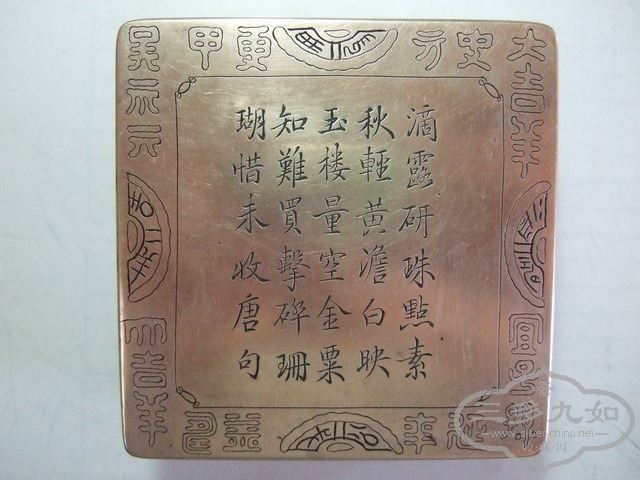 滴露研珠點素
秋輕黃澹白映
玉楼量空金粟
知難買擊碎珊
瑚惜未收唐句
大吉羊
大吉羊
三多九如
www.silver-china.net